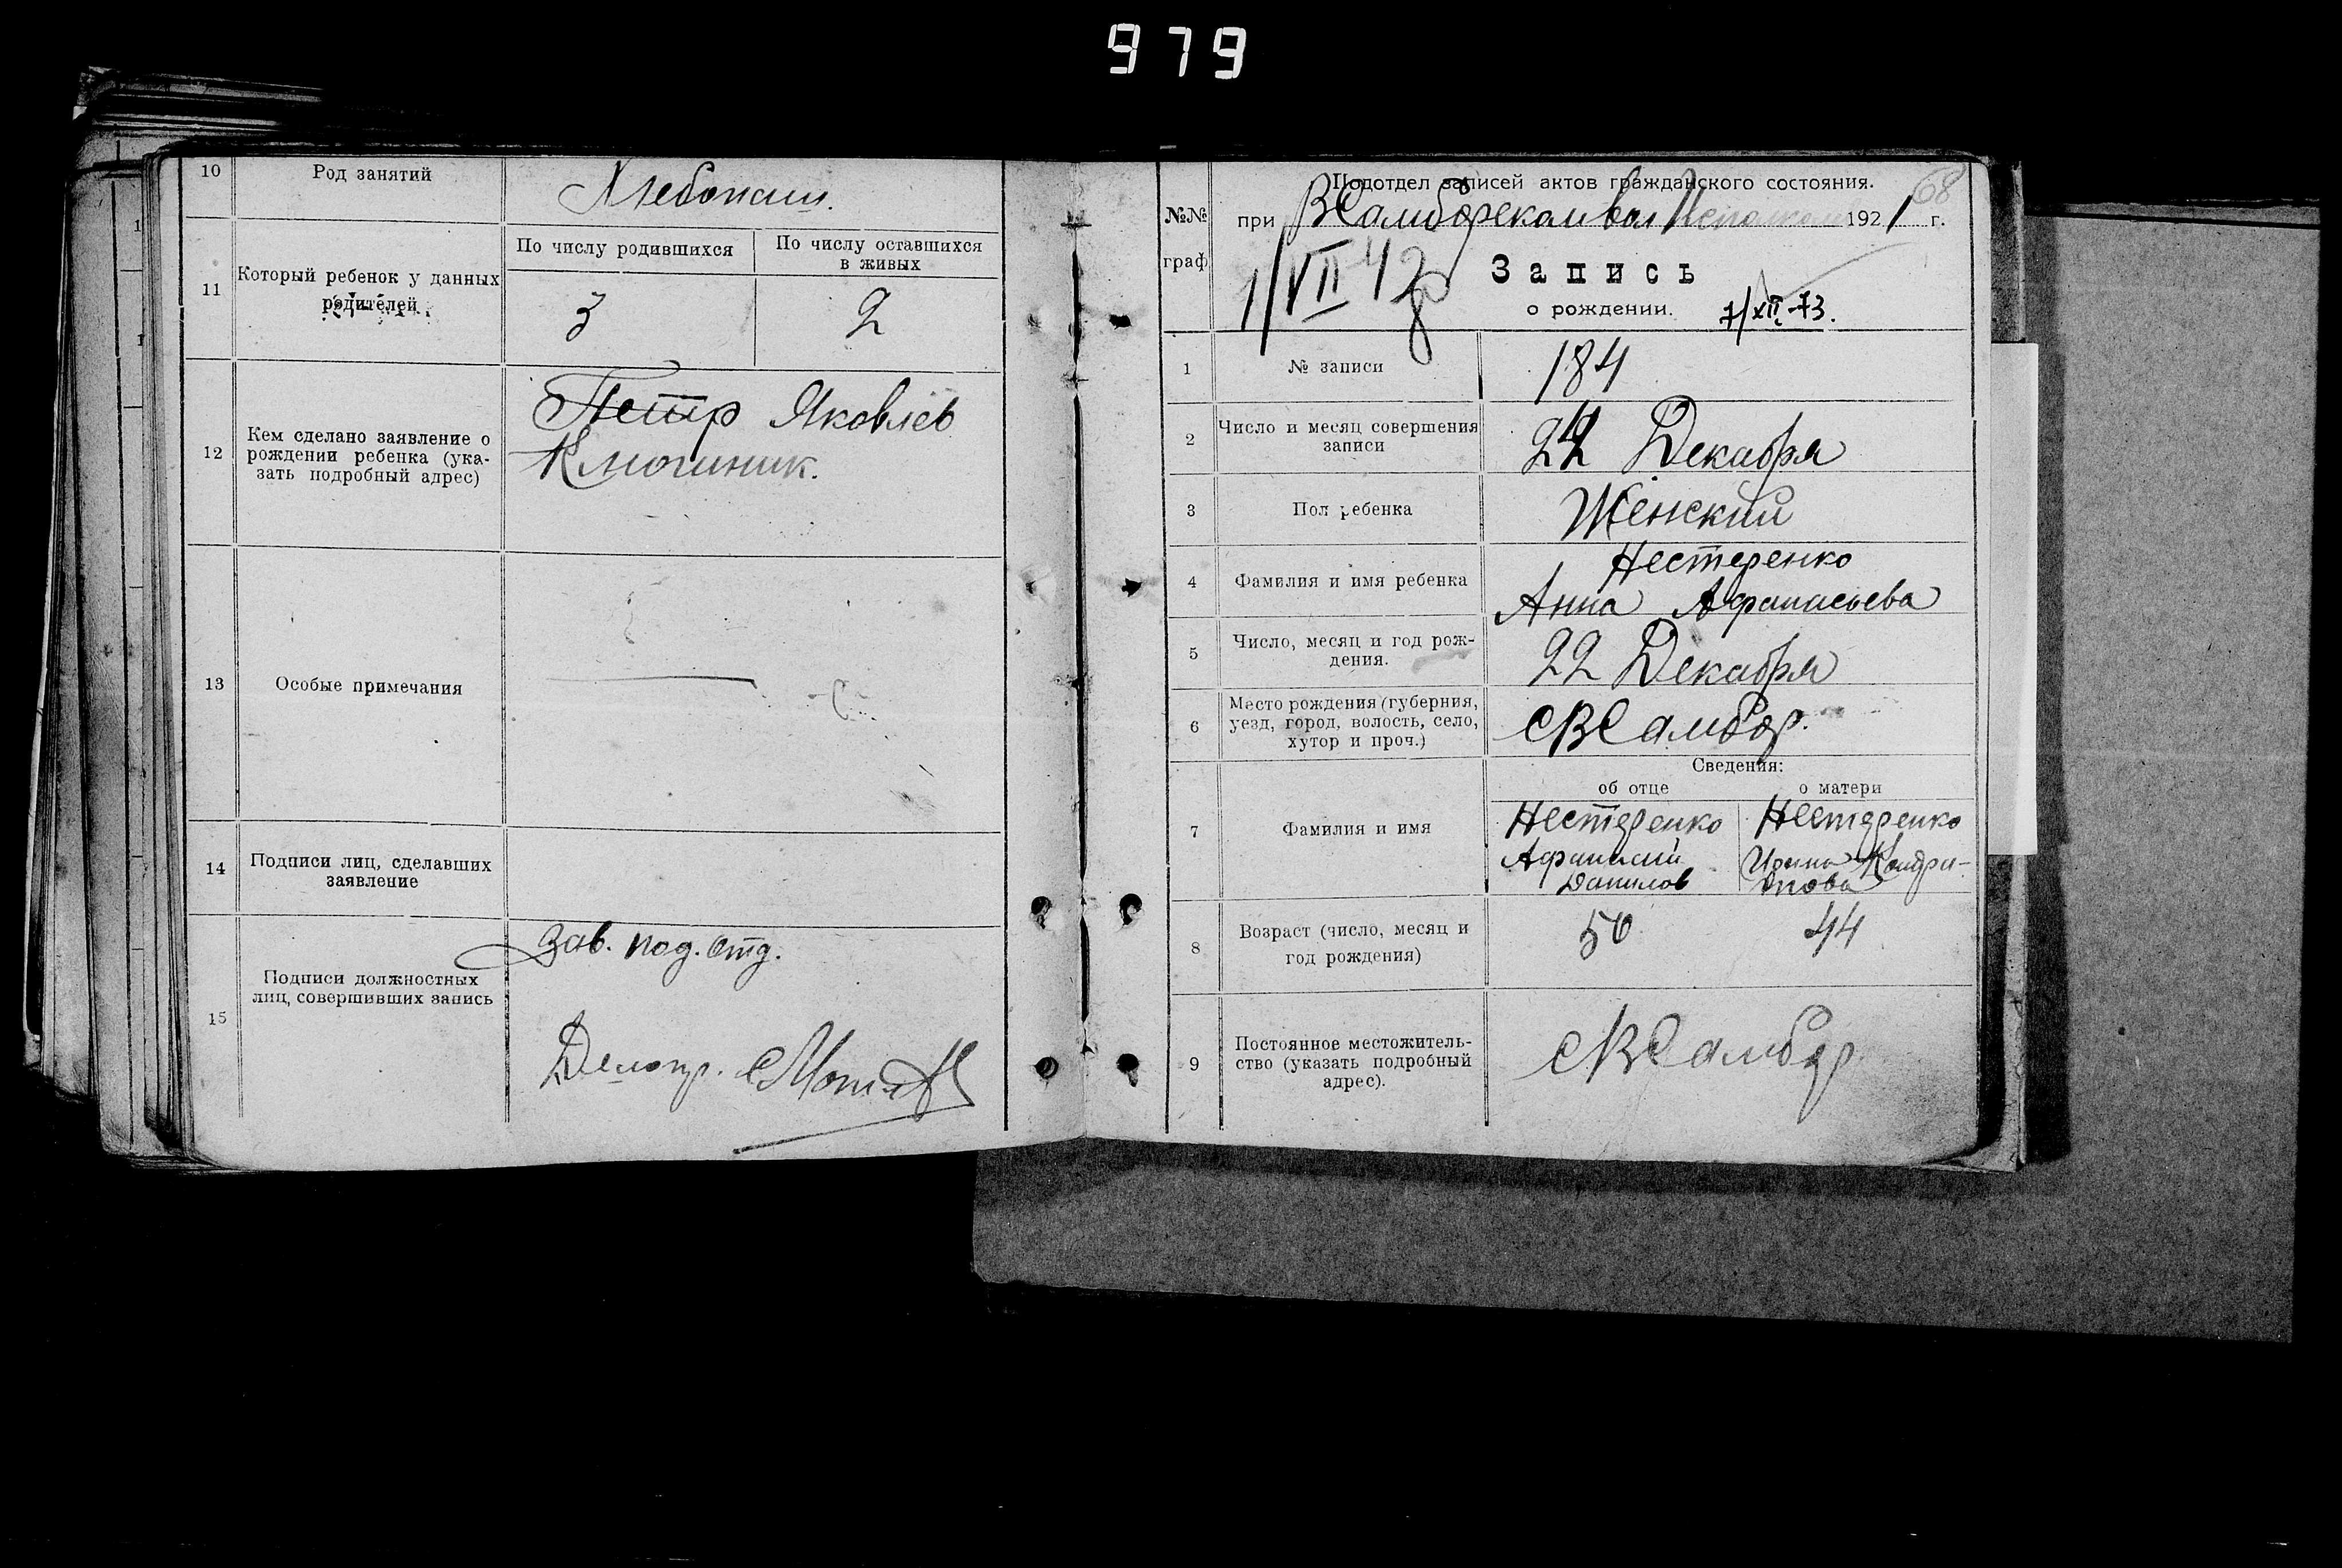 979
10 Род занятий Хлебопаш.
11 Который ребенок у данных родителей
По числу родившихся По числу оставшихся в живых
3 2
12 Кем сделано заявление о рождении ребенка (ука-
зать подробный адрес)
Петр Яковлев
Ключник.
13 Особые примечания
14 Подписи лиц, сделавших
заявление
15 Подписи должностных
лиц, совершивших запись
Зав. под. отд.
Делопр.
68
Подотдел записей актов гражданского состояния.
№№ граф
при ВСамборском вол Исполкоме 1921 г.
1/VII 42
Запись
о рождении. 7/XII-73.
1 № записи 184
2 Число и месяц совершения
записи 22 Декабря
3 Пол ребенка Женский
4 Фамилия и имя ребенка Нестеренко
Анна Афанасьева
5 Число, месяц и год рож-
дения. 22 Декабря
6 Место рождения (губерния,
уезд, город, волость, село,
хутор и проч.) с ВСамбор.
Сведения:
об отце о матери
7 Фамилия и имя
Нестеренко Нестеренко
Афанасий Ирина Кондра-
Данилов това
8 Возраст (число, месяц и
год рождения) 50 44
9 Постоянное местожитель-
ство (указать подробный
адрес). с ВСамбор